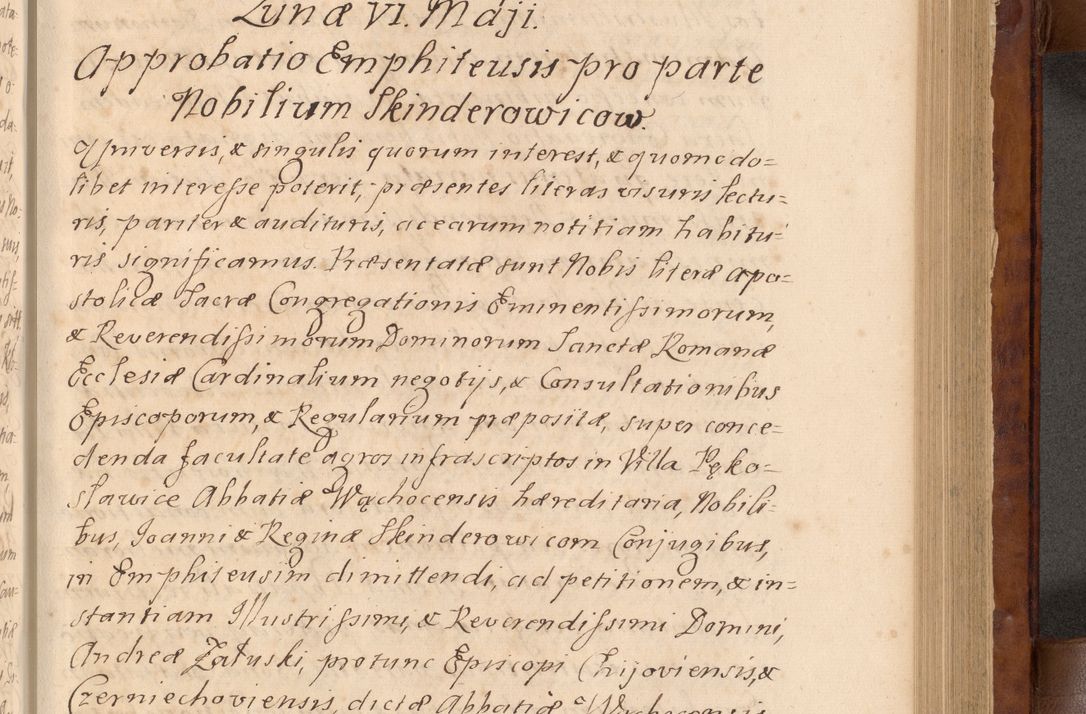 Lunæ VI. Maji.
Approbatio Emphiteusis pro parte
Nobilium Skinderowicow.
Universis, & singulis quorum interest, & quomodo=
libet interesse poterit, præsentes literas visuris lectu=
ris, pariter & audituris, ac earum notitiam habitu=
ris significamus. Præsentatæ sunt Nobis literæ Apo=
stolicæ Sacræ Congregationis Eminentissimorum,
& Reverendissimorum Dominorum Sanctæ Romanæ
Ecclesiæ Cardinalium negotijs, & Consultationibus
Episcoporum, & Regularium præpositæ, super conce=
denda facultate agros infrascriptos in Villa Pęko=
sławice Abbatiæ Wąchocensis hæreditaria, Nobili=
bus, Joanni & Reginæ Skinderowicom Conjugibus,
in Emphiteusim dimittendi, ad petitionem, & in=
stantiam Illustrissimi, & Reverendissimi Domini,
Andreæ Załuski, pro tunc Episcopi Chijoviensis, &
Czerniechoviensis, dictæ Abbatiæ Wąchocensis